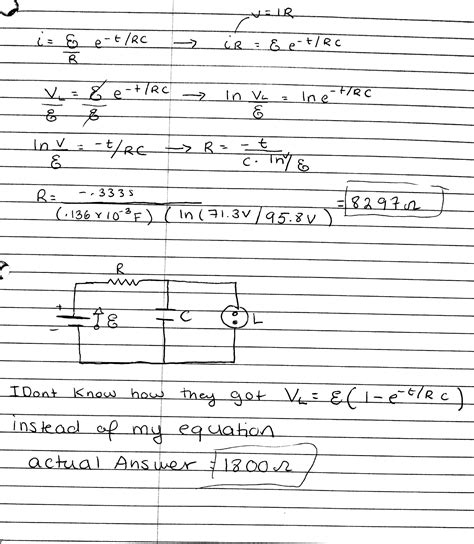 V = IR
i = ℰ/R e^-t/RC → iR = ℰ e^-t/RC
V_L/ℰ = ℰ/ℰ e^-t/RC → ln V_L/ℰ = ln e^-t/RC
ln V/ℰ = -t/RC → R = -t/(C · ln V/ℰ)
R = -.333s/((.136 x 10^-3 F)(ln(71.3V/95.8V))) = 8297Ω
R
+ - ℰ C L
I Dont Know how they got V_L = ℰ(1 - e^-t/RC)
instead of my equation
actual Answer = 1800Ω